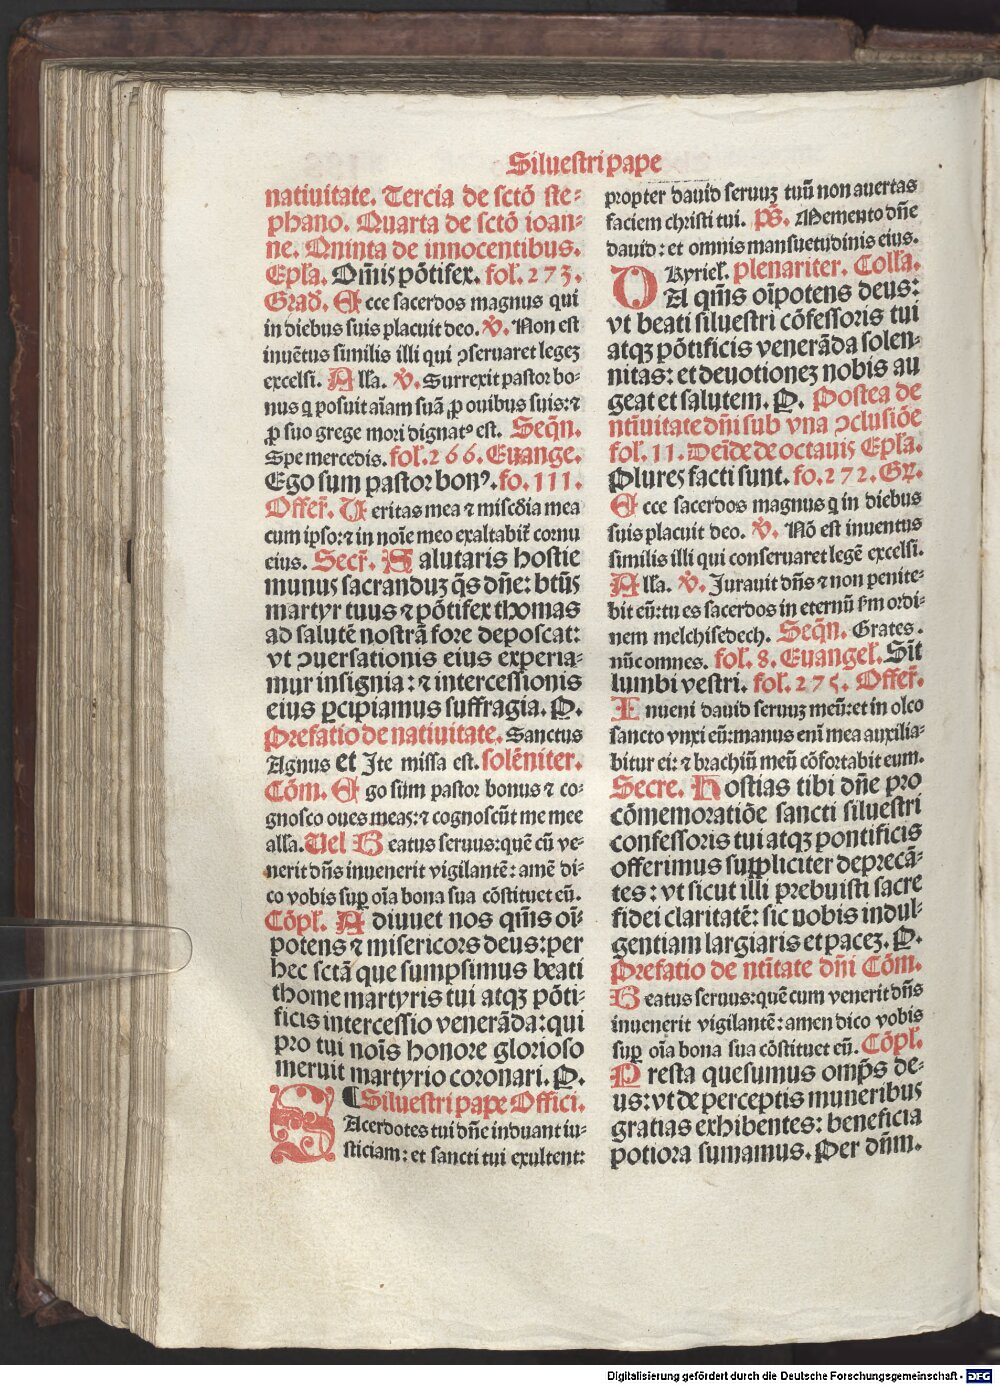 Siluestri pape
natiuitate. Tercia de sctō ste-
phano. Quarta de sctō ioan-
ne. Quinta de innocentibus.
Epl'a. Om̄is pōtifex. fol. 273.
Grad̄. Ecce sacerdos magnus qui
in diebus suis placuit deo. ℣. Non est
inuētus similis illi qui ꝯseruaret legeꝫ
excelsi. Alla. ℣. Surrexit pastor bo-
nus q̄ posuit aīam suā ꝓ ouibus suis: ⁊
ꝓ suo grege mori dignatꝰ est. Seqn̄.
Spe mercedis. fol. 266. Euange.
Ego sum pastor bonꝰ. fo. 111.
Offer̄. Ueritas mea ⁊ misc̄dia mea
cum ipso: ⁊ in noīe meo exaltabit̄ cornu
eius. Secr̄. Salutaris hostie
munus sacranduꝫ q̄s dn̄e: btūs
martyr tuus ⁊ pōtifex thomas
ad salutē nostrā fore deposcat:
vt ꝯuersationis eius experia-
mur insignia: ⁊ intercessionis
eius ꝑcipiamus suffragia. P.
Prefatio de natiuitate. Sanctus
Agnus et Ite missa est. solēniter.
Cōm. Ego sum pastor bonus ⁊ co-
gnosco oues meas: ⁊ cognoscūt me mee
alla. Uel Beatus seruus: quē cū ve-
nerit dn̄s inuenerit vigilantē: amē di-
co vobis suꝑ oīa bona sua cōstituet eū.
Cōpl. Adiuuet nos qm̄s oī-
potens ⁊ misericors deus: per
hec sctā que sumpsimus beati
thome martyris tui atqꝫ pōti-
ficis intercessio venerāda: qui
pro tui noīs honore glorioso
meruit martyrio coronari. P.
¶ Siluestri pape Offici.
SAcerdotes tui dn̄e induant iu-
sticiam: et sancti tui exultent:
propter dauid seruuꝫ tuū non auertas
faciem christi tui. Ps̄. Memento dn̄e
dauid: et omnis mansuetudinis eius.
Kyriel. plenariter. Colla.
DA qm̄s oīpotens deus:
vt beati siluestri cōfessoris tui
atqꝫ pōtificis venerāda solen-
nitas: et deuotioneꝫ nobis au
geat et salutem. P. Postea de
natīuitate dn̄i sub vna ꝯclusiōe
fol. 11. Deīde de octauis Epl'a.
Plures facti sunt. fo. 272. Gr̄.
Ecce sacerdos magnus q̄ in diebus
suis placuit deo. ℣. Nō est inuentus
similis illi qui conseruaret legē excelsi.
Alla. ℣. Jurauit dn̄s ⁊ non penite-
bit eū: tu es sacerdos in eternū s̄m ordi-
nem melchisedech. Seqn̄. Grates
nūc omnes. fol. 8. Euangel. Sīt
lumbi vestri. fol. 275. Offer̄.
Inueni dauid seruuꝫ meū: et in oleo
sancto vnxi eū: manus enī mea auxilia-
bitur ei: ⁊ brachiū meū cōfortabit eum.
Secre. Hostias tibi dn̄e pro
cōmemoratiōe sancti siluestri
confessoris tui atqꝫ pontificis
offerimus suppliciter deprecā-
tes: vt sicut illi prebuisti sacre
fidei claritatē: sic nobis indul-
gentiam largiaris et paceꝫ. P.
Prefatio de ntītate dn̄i Cōm.
Beatus seruus: quē cum venerit dn̄s
inuenerit vigilantē: amen dico vobis
suꝑ oīa bona sua cōstituet eū. Cōpl.
Presta quesumus omp̄s de-
us: vt de perceptis muneribus
gratias exhibentes: beneficia
potiora sumamus. Per dn̄m.
Digitalisierung gefördert durch die Deutsche Forschungsgemeinschaft - DFG